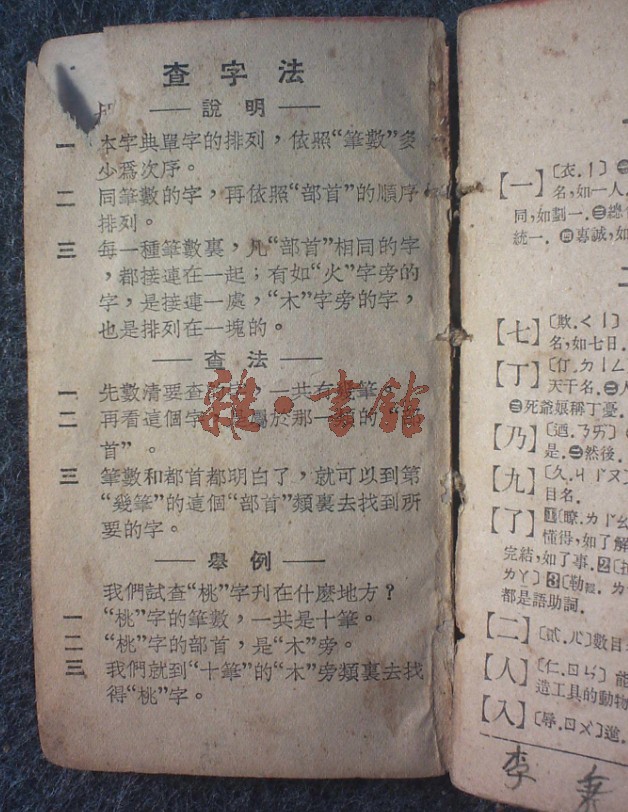 查字法
說明
一 本字典單字的排列，依照“筆數”多
少爲次序。
二 同筆數的字，再依照“部首”的順序
排列。
三 每一種筆數裏，凡“部首”相同的字
，都接連在一起；有如“火”字旁的
字，是接連一處，“木”字旁的字，
也是排列在一塊的。
查法
一 先數清要查的，一共有幾筆。
二 再看這個字，屬於那一類的“
首”。
三 筆數和都首都明白了，就可以到第
“幾筆”的這個“部首”類裏去找到所
要的字。
舉例
我們試查“桃”字刋在什麽地方？
一 “桃”字的筆數，一共是十筆。
二 “桃”字的部首，是“木”旁。
三 我們就到“十筆”的“木”旁類裏去找
得“桃”字。
雜·書館
一
【一】〔衣.ㄧ〕
名，如一人.
同，如劃一.㊂總
統一.㊃專誠，如
二
【七】〔欺.ㄑㄧ〕
名，如七日.
【丁】〔仃.ㄉㄧㄥ
天干名.㊁人
㊂死爺娘稱丁憂.
【乃】〔迺.ㄋㄞ〕
是.㊁然後.
【九】〔久.ㄐㄧㄡ〕
目名.
【了】1〔瞭.ㄌㄧㄠ
懂得，如了解
完結，如了事.2〔
ㄌㄚ〕3〔勒.ㄌ
都是語助詞.
【二】〔貳.ㄦ〕數目
【人】〔仁.ㄖㄣ〕能
造工具的動物
【入】〔辱.ㄖㄨ〕進.
李